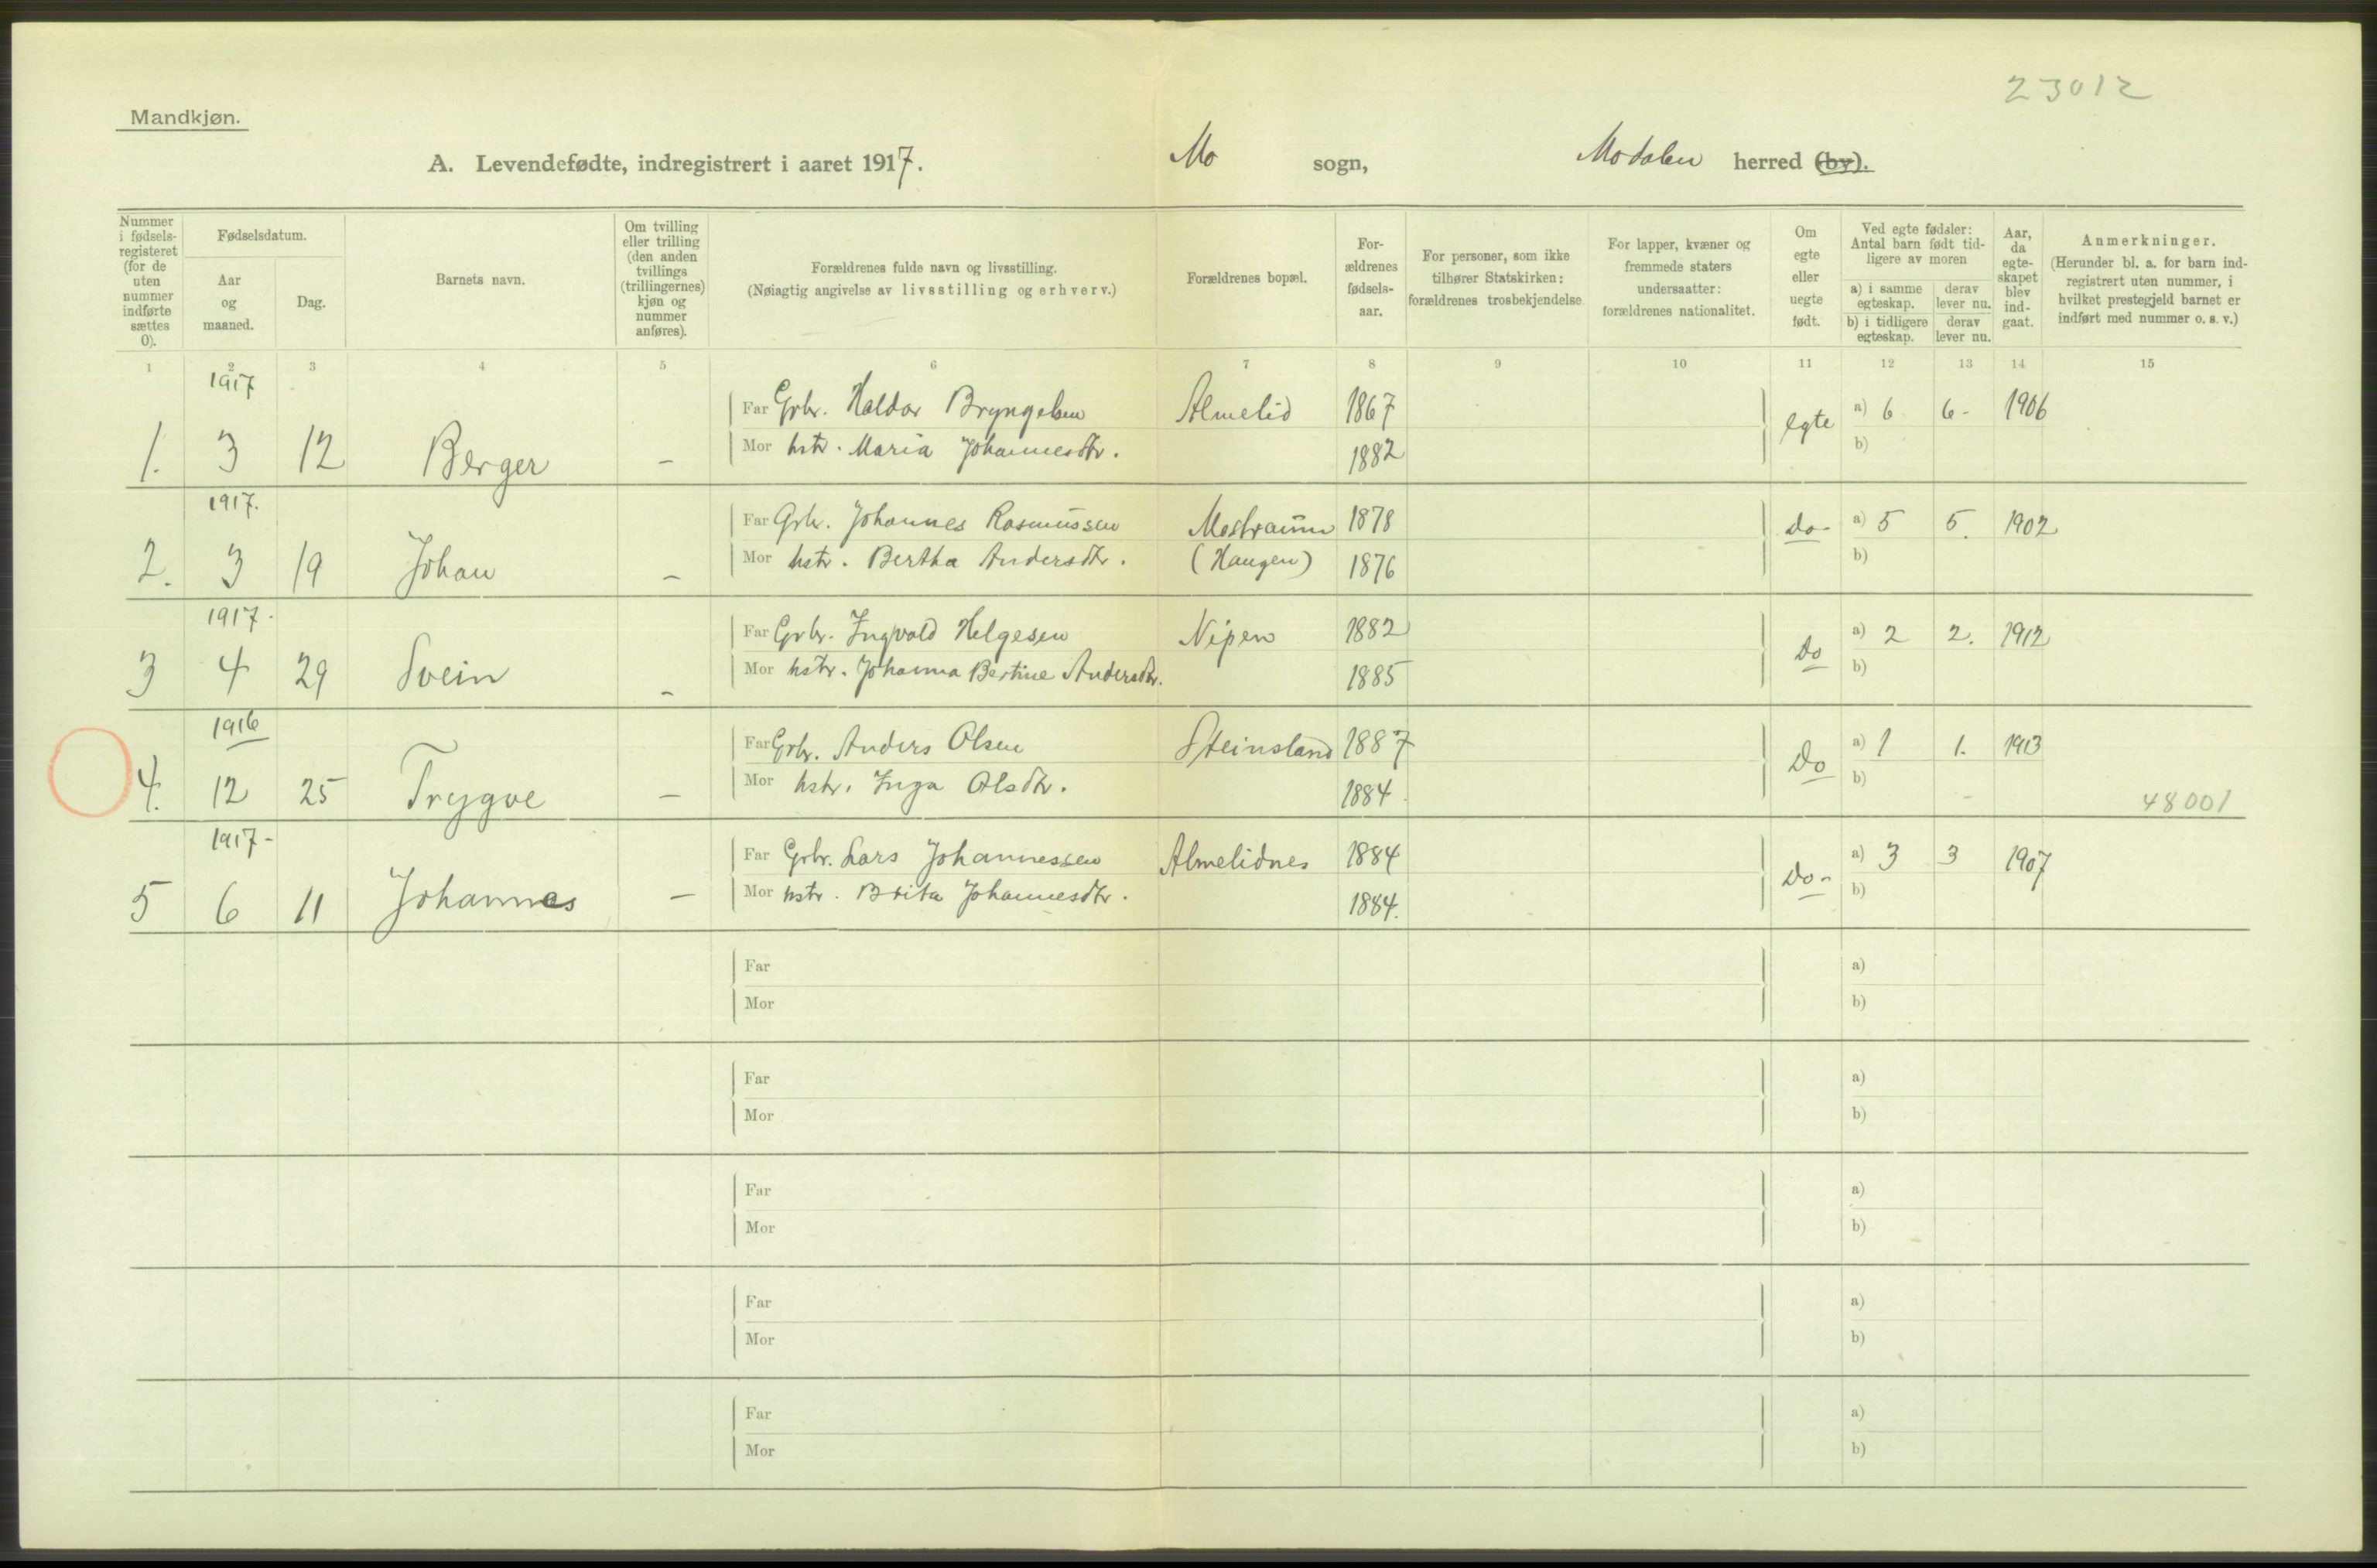 23012
Mandkjøn.
A. Levendefødte, indregistrert i aaret 1917. Mo sogn, Modalen herred (by).
Nummer i fødsels-registeret (for de uten nummer indførte sættes 0).
Fødselsdatum.
Aar og maaned.
Dag.
Barnets navn.
Om tvilling eller trilling (den anden tvillings (trillingernes) kjøn og nummer anføres).
Forældrenes fulde navn og livsstilling.
(Nøiagtig angivelse av livsstilling og erhverv.)
Forældrenes bopæl.
For-ældrenes fødsels-aar.
For personer, som ikke tilhører Statskirken: forældrenes trosbekjendelse
For lapper, kvæner og fremmede staters undersaatter: forældrenes nationalitet.
Om egte eller uegte født.
Ved egte fødsler: Antal barn født tid-ligere av moren
a) i samme egteskap. derav lever nu.
b) i tidligere egteskap. derav lever nu.
Aar, da egte-skapet blev ind-gaat.
Anmerkninger.
(Herunder bl. a. for barn ind-registrert uten nummer, i hvilket prestegjeld barnet er indført med nummer o. s. v.)
1 2 3 4 5 6 7 8 9 10 11 12 13 14 15
1917
Far Grbr. Haldor Bryngelsen Almelid 1867 egte a) 6 6- 1906
1. 3 12 Berger – Mor hstr. Maria Johannesdtr. 1882 b)
1917.
Far Grbr. Johannes Rasmussen Mostraum 1878 do- a) 5 5. 1902
2. 3 19 Johan – Mor hstr. Bertha Andersdtr. (Haugen) 1876 b)
1917.
Far Grbr. Ingvald Helgesen Nipen 1882 Do a) 2 2. 1912
3 4 29 Svein – Mor hstr. Johanna Bertine Andersdtr. 1885 b)
1916
Far Grbr. Anders Olsen Steinsland 1887 Do a) 1 1. 1913
4. 12 25 Trygve – Mor hstr. Inga Olsdtr. 1884 b) 48001
1917-
Far Grbr. Lars Johannessen Almelidnes 1884 Do- a) 3 3 1907
5 6 11 Johannes – Mor hstr. Brita Johannesdtr. 1884. b)
Far a)
Mor b)
Far a)
Mor b)
Far a)
Mor b)
Far a)
Mor b)
Far a)
Mor b)